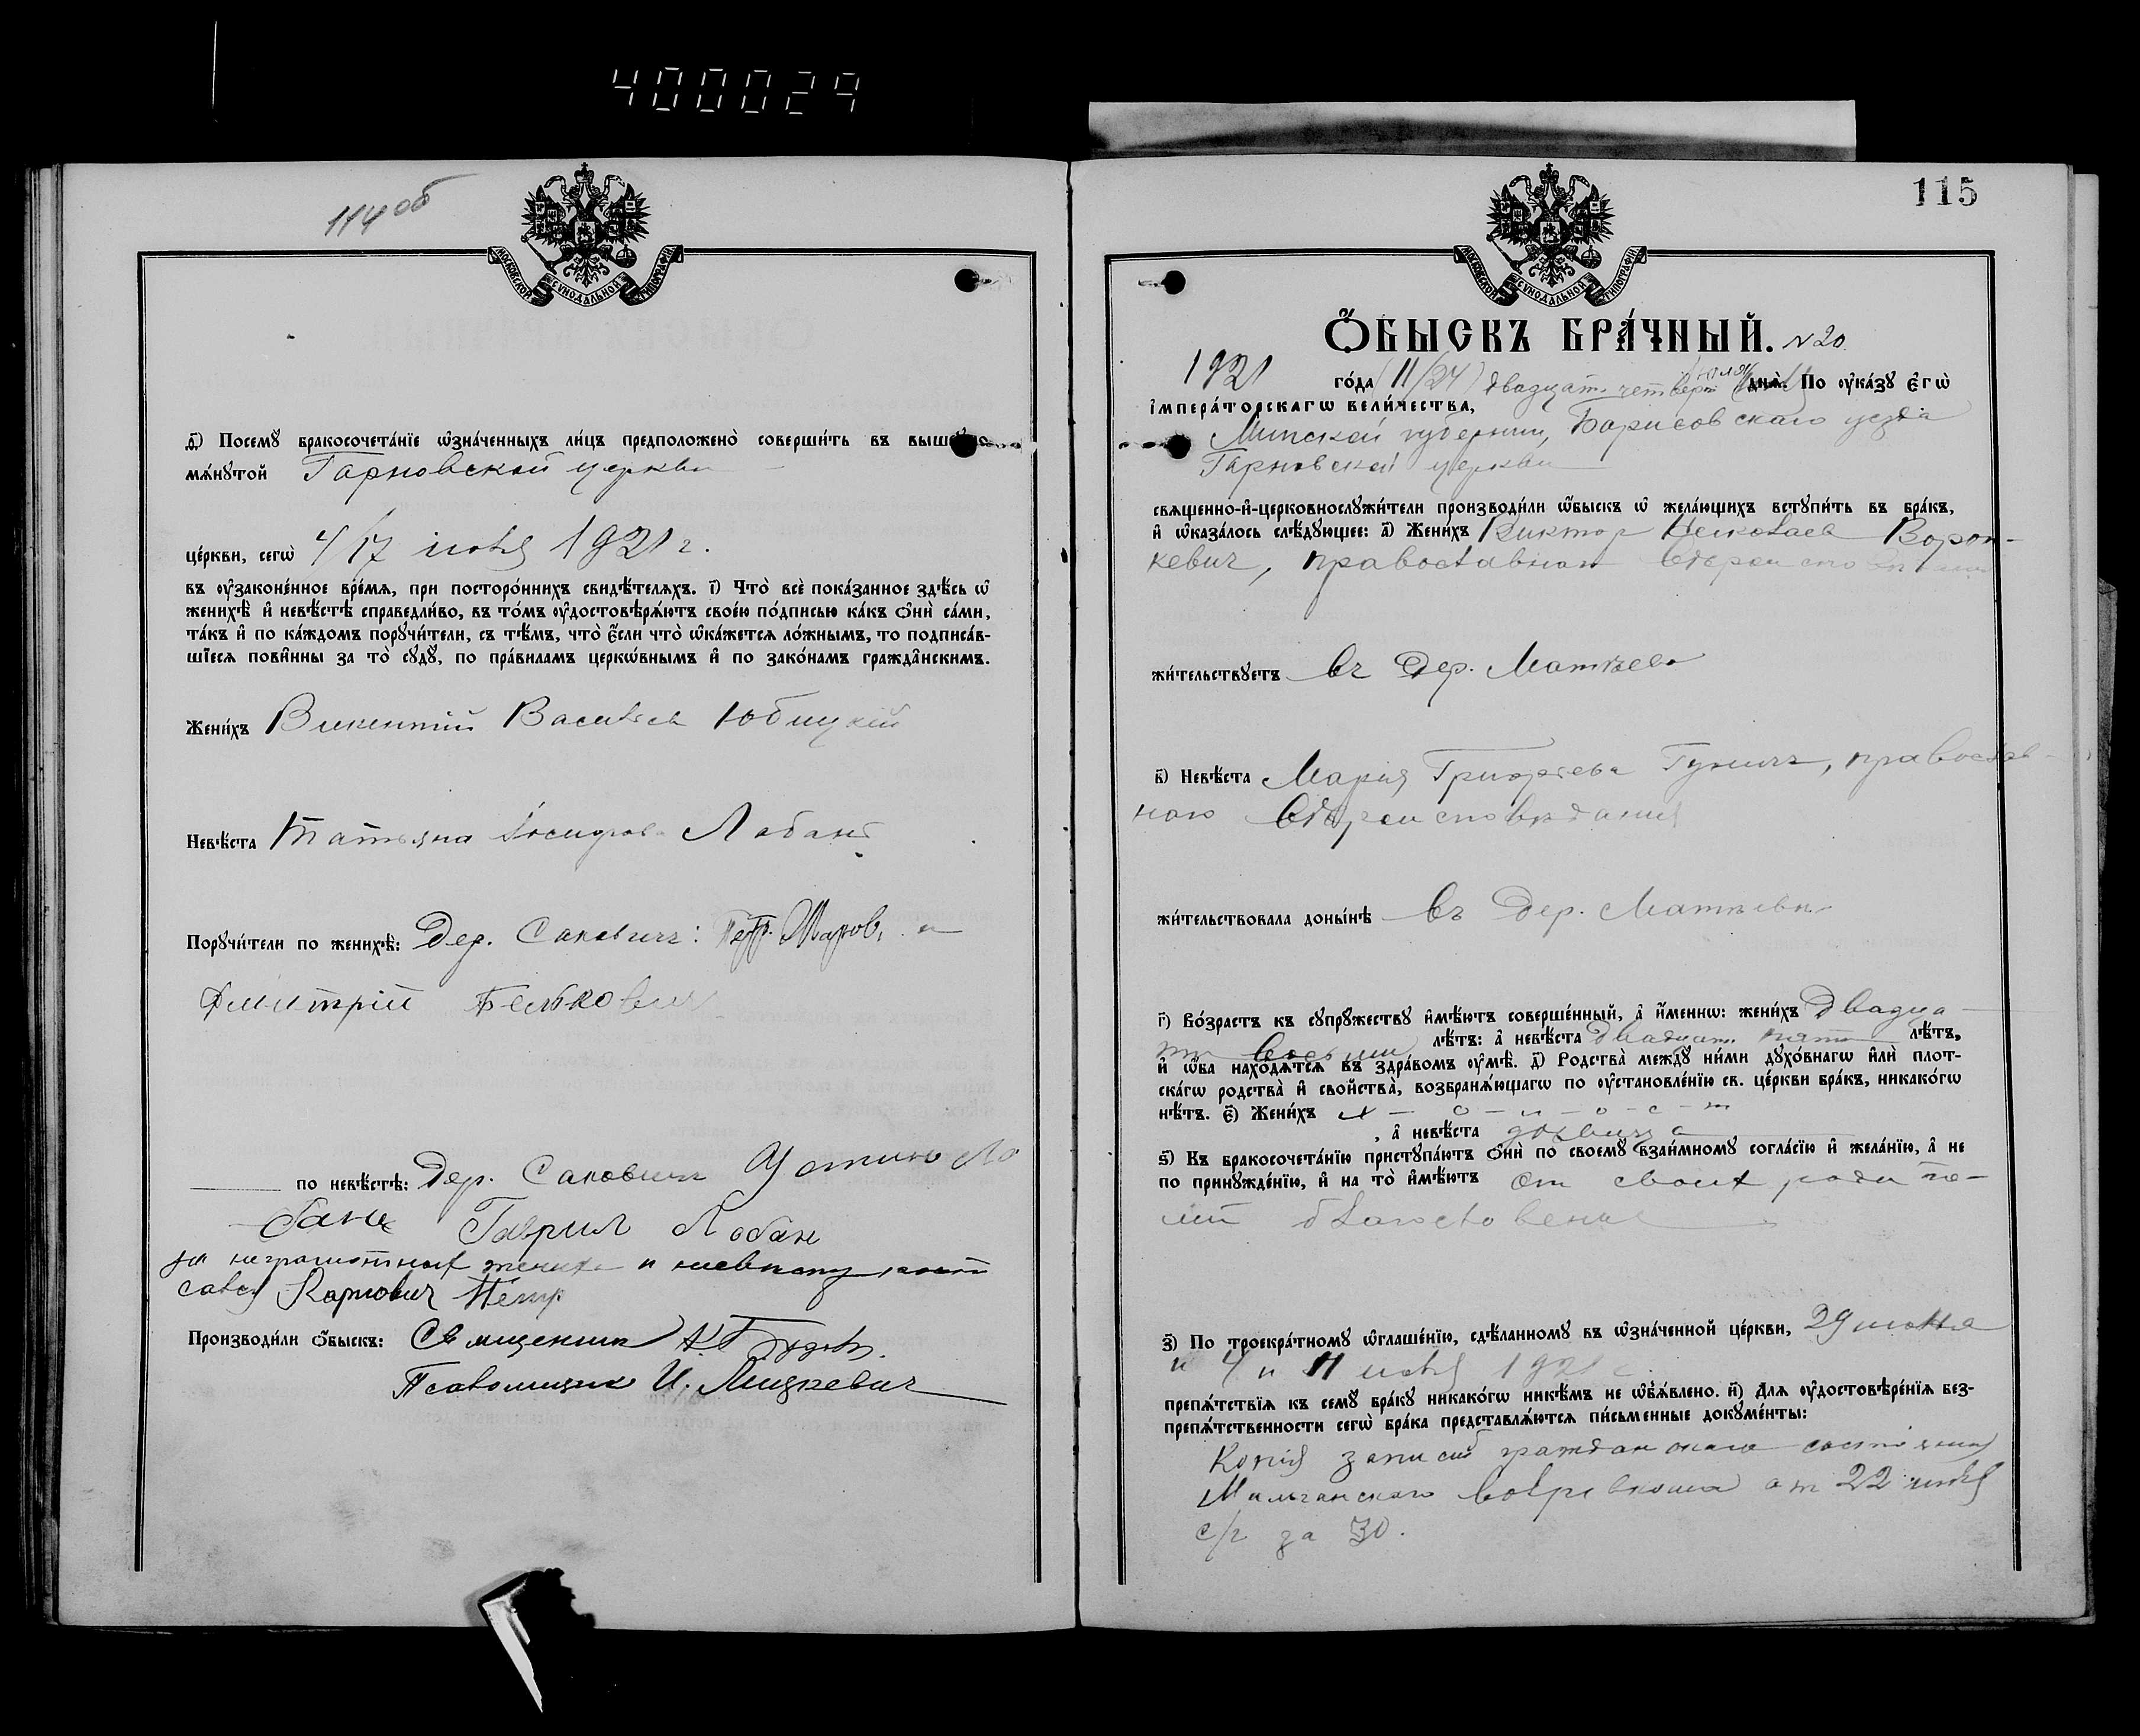 400029
114 об
МОСКОВСКОЙ СѴНОДАЛЬНОЙ ТИПОГРАФІИ
д҃) Посемꙋ̀ бракосочета́нїе ѡ҆зна́ченныхъ ли́цъ предположено̀ соверши́ть въ выше
мѧ́нꙋтой Гарновской церкви
це́ркви, сегѡ̀ 4/17 июля 1921 г.
въ ᲂу҆законе́нное вре́мѧ, при посторо́ннихъ свидѣ́телѧхъ. і҃) Что̀ всѐ пока́занное здѣ́сь ѡ҆
женихѣ̀ и҆ невѣ́стѣ справедли́во, въ то́мъ ᲂу҆достовѣрѧ́ютъ свое́ю по́дписью ка́къ ѻ҆нѝ са́ми,
та́къ и҆ по ка́ждомъ порꙋчи́тели, съ тѣ́мъ, что̀ є҆́сли что̀ ѡ҆ка́жетсѧ ло́жнымъ, то подписа́в-
шїесѧ пови́нны за то̀ сꙋдꙋ̀, по пра́виламъ церко́внымъ и҆ по зако́намъ гражда̂нскимъ.
Жени́хъ Викентий Васильев Юбицкий
Невѣ́ста Татьяна Лобан
Порꙋчи́тели по женихѣ̀: Дер. Сакович: Петр. Маров. и
Димитрий Белькович
по невѣ́стѣ: Дер. Сакович Устин Ло
бане Гаврил Лобан
за неграмотных жениха и невесту распи
сался Карпович Петр
Производи́ли ѻ҆́быскъ: Священник
Псаломщик И. Мицкевич
115
МОСКОВСКОЙ СѴНОДАЛЬНОЙ ТИПОГРАФІИ
Ѻ҆́БЫСКЪ БРА́ЧНЫЙ. N 20
1921 го́да (11/24) двадцать четверт июля днѧ̀. По ᲂу҆ка́зꙋ є҆гѡ̀
і҆мпера́торскагѡ вели́чества,
Минской губернии, Борисовского уезда
Гарновской церкви
свѧщенно-и҆-церковнослꙋжи́тели производи́ли ѡ҆́быскъ ѡ҆ жела́ющихъ встꙋпи́ть въ бра́къ,
и҆ ѡ҆каза́лось слѣ́дꙋющее: а҃) Жени́хъ Виктор Николаев Ворон-
кевич, православнаго вероисповедания
жи́тельствꙋетъ въ дер. Матвеево
в҃) Невѣ́ста Мария Григорьева Гунич, православ-
наго вероисповедания
жи́тельствовала доны́нѣ въ дер. Матвеево
г҃) Во́зрастъ къ сꙋпрꙋ́жествꙋ и҆мѣ́ютъ соверше́нный, а҆ и҆́меннѡ: жени́хъ двадца-
ти восьми лѣ́тъ: а҆ невѣ́ста двадцати пяти лѣ́тъ,
и҆ ѻ҆́ба нахо́дѧтсѧ въ здра́вомъ ᲂу҆мѣ̀. д҃) Родства̀ междꙋ̀ ни́ми дꙋхо́внагѡ и҆лѝ плот-
ска́гѡ родства̀ и҆ сво́йства̀, возбранѧ́ющагѡ по ᲂу҆становле́нїю св. це́ркви бра́къ, никако́гѡ
нѣ́тъ. є҃) Жени́хъ х - о - л - о - с - т
, а҆ невѣ́ста девица
ѕ҃) Къ бракосочета́нїю пристꙋпа́ютъ ѻ҆нѝ по своемꙋ̀ взаи́мномꙋ согла́сїю и҆ жела́нїю, а҆ не
по принꙋжде́нїю, и҆ на то̀ и҆мѣ́ютъ от своих родите-
лей благословение
з҃) По троекра́тномꙋ ѡ҆глаше́нїю, сдѣ́ланномꙋ въ ѡ҆зна́ченной це́ркви, 29 июня
и 4 и 11 июля 1921 г.
препѧ́тствїѧ къ семꙋ̀ бра́кꙋ никако́гѡ никѣ́мъ не ѡ҆б̾ѧ́влено. и҃) Длѧ ᲂу҆достовѣре́нїѧ без-
препѧ́тственности сегѡ̀ бра́ка представлѧ́ютсѧ пи́сьменные докꙋме́нты:
Копия записи гражданскаго состояния
Мильчанскаго волревкома от 22 июля
с/г за 30.